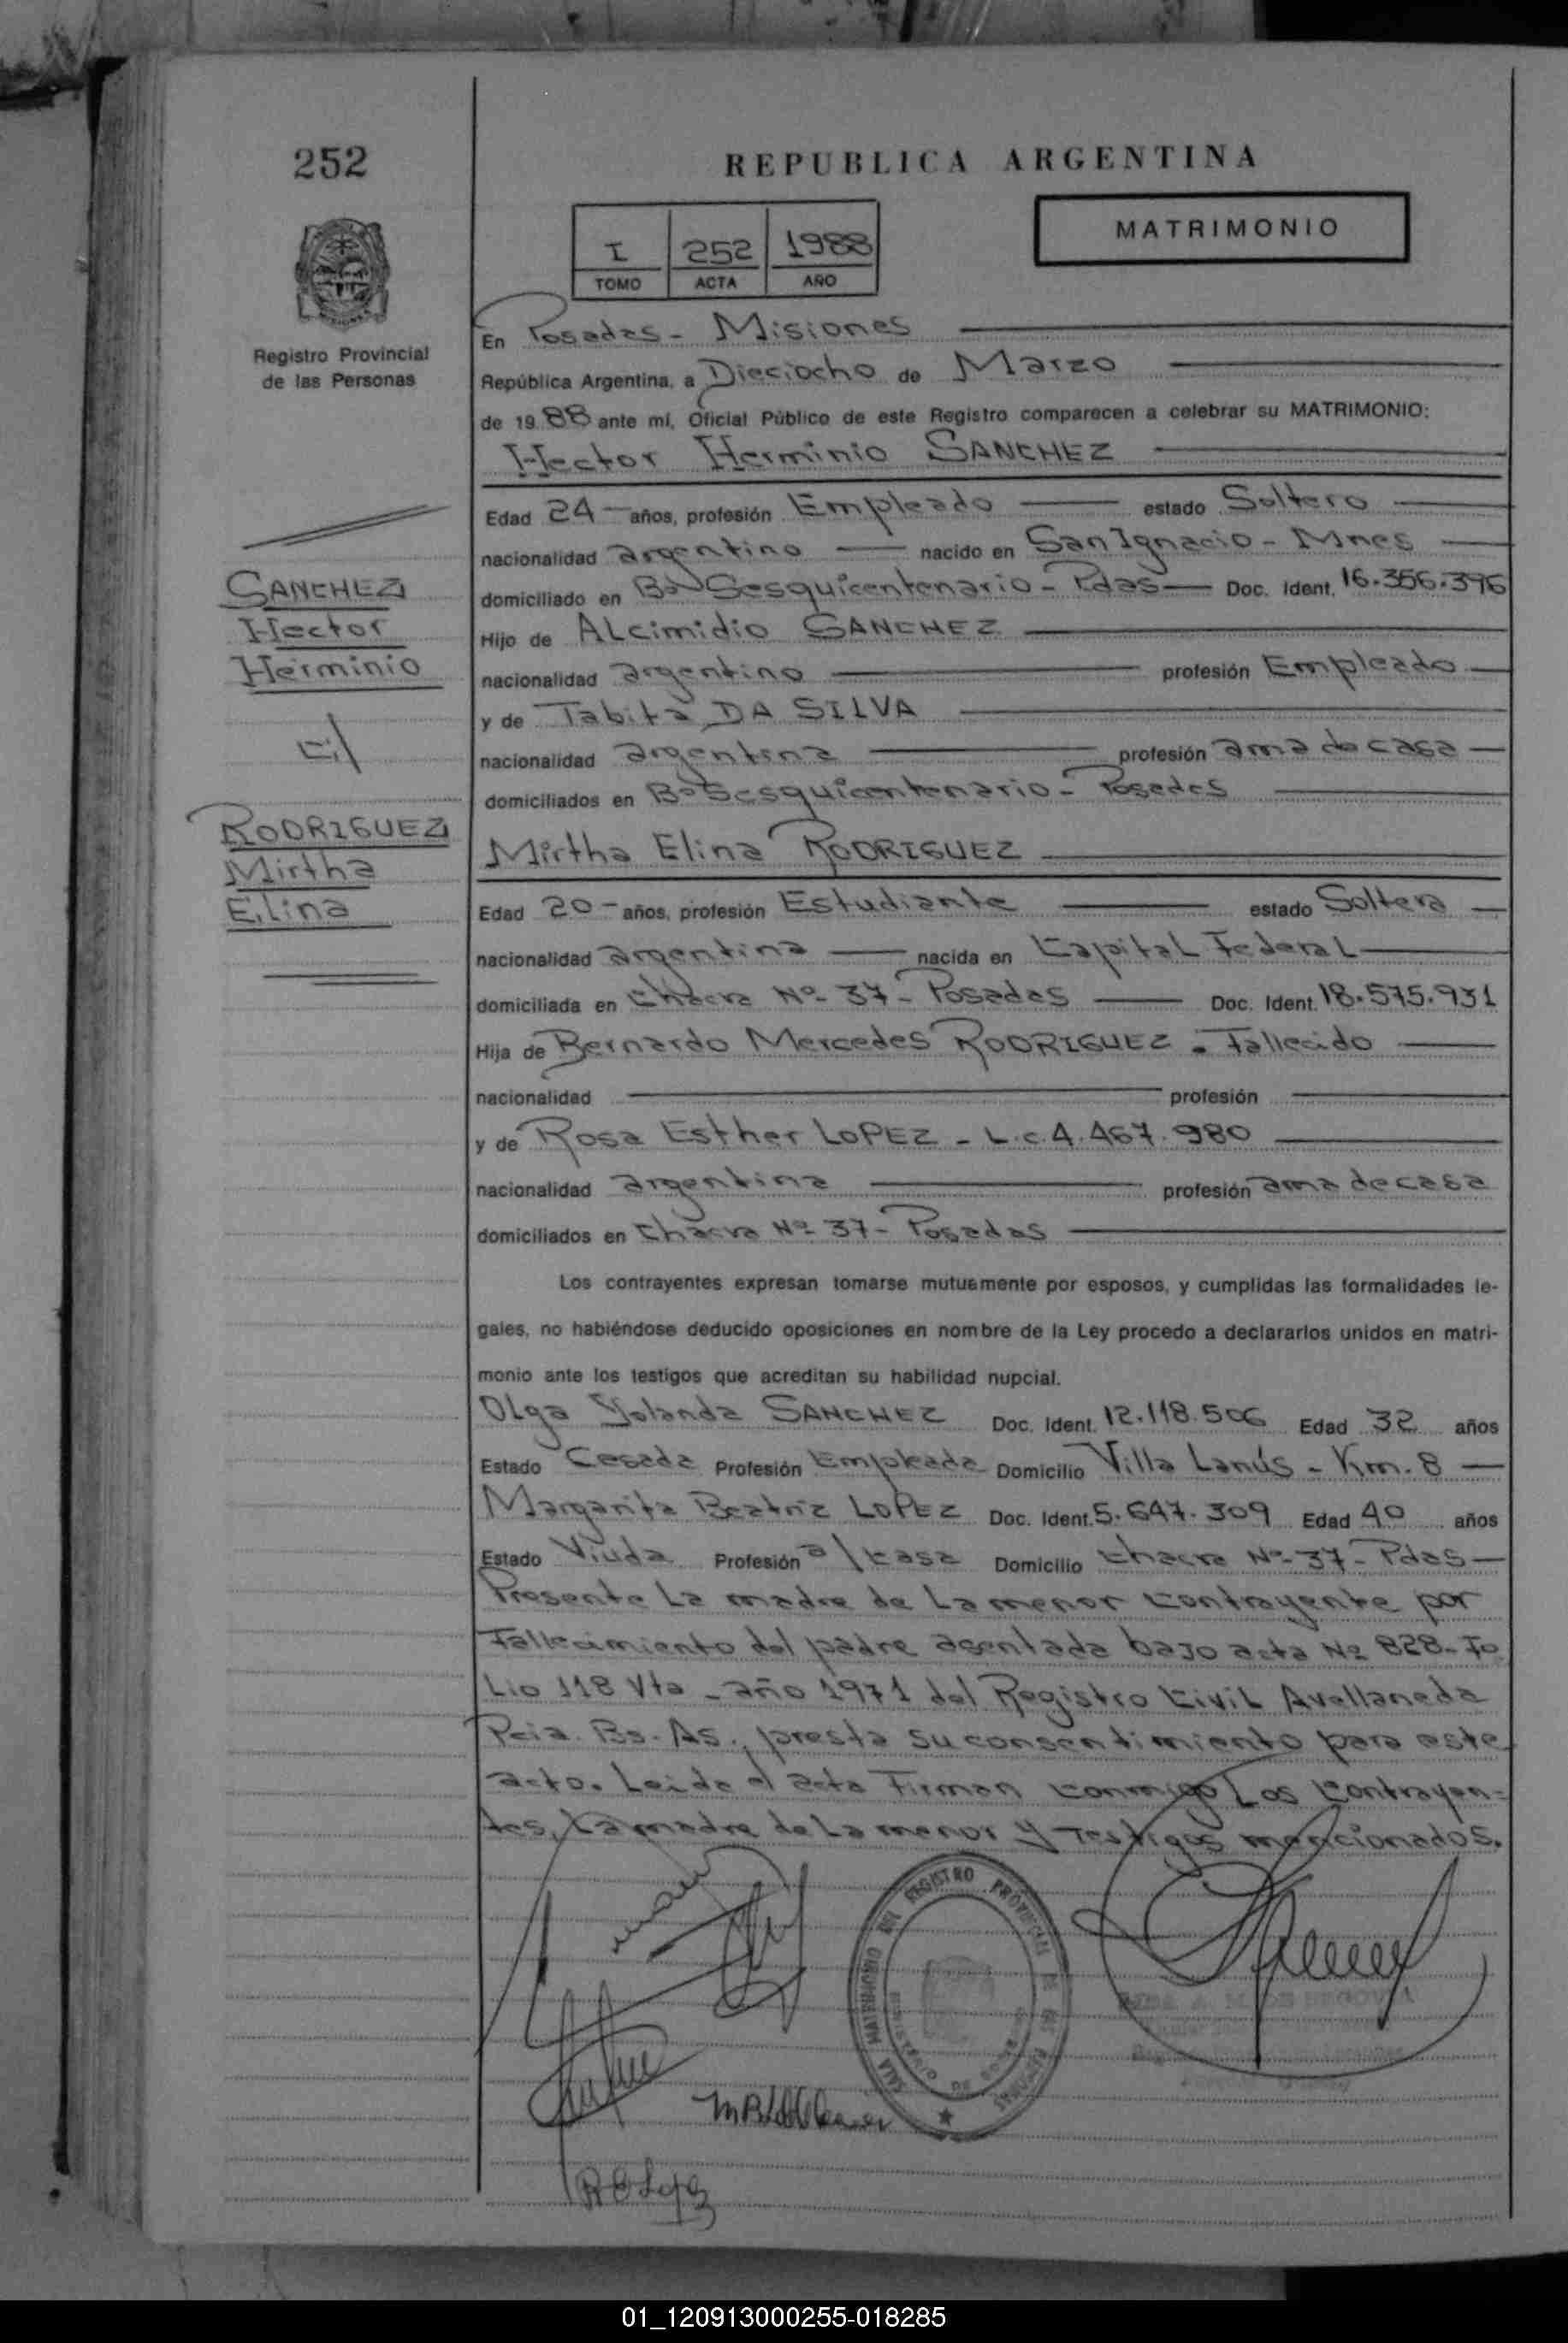 252
REPUBLICA ARGENTINA
MATRIMONIO
I 252 1988
TOMO ACTA AÑO
Registro Provincial
de las Personas
En Posadas - Misiones
República Argentina, a Dieciocho de Marzo
de 1988 ante mí, Oficial Público de este Registro comparecen a celebrar su MATRIMONIO:
Hector Herminio SANCHEZ
Edad 24 años, profesión Empleado estado Soltero
nacionalidad argentino nacido en San Ignacio - Mnes
domiciliado en Bº Sesquicentenario - Pdas Doc. Ident. 16.356.396
Hijo de ALcimidio SANCHEZ
nacionalidad argentino profesión Empleado
y de Tabita DA SILVA
nacionalidad argentina profesión ama de casa
domiciliados en Bº Sesquicentenario - Posadas
SANCHEZ
Hector
Herminio
c/
RODRIGUEZ
Mirtha
Elina
Mirtha Elina RODRIGUEZ
Edad 20 - años, profesión Estudiante estado Soltera
nacionalidad argentina nacida en Capital Federal
domiciliada en Chacra Nº 37 - Posadas Doc. Ident. 18.575.931
Hija de Bernardo Mercedes RODRIGUEZ - Fallecido
nacionalidad profesión
y de Rosa Esther LOPEZ - L.c. 4.467.980
nacionalidad argentina profesión ama de casa
domiciliados en Chacra Nº 37 - Posadas
Los contrayentes expresan tomarse mutuamente por esposos, y cumplidas las formalidades le-
gales, no habiéndose deducido oposiciones en nombre de la Ley procedo a declararlos unidos en matri-
monio ante los testigos que acreditan su habilidad nupcial.
Olga Yolanda SANCHEZ Doc. Ident. 12.118.506 Edad 32 años
Estado Casada Profesión Empleada Domicilio Villa Lanús - Km. 8
Margarita Beatriz LOPEZ Doc. Ident. 5.647.309 Edad 40 años
Estado Viuda Profesión a/casa Domicilio Chacra Nº 37 - Pdas
Presente La madre de La menor contrayente por
Fallecimiento del padre asentada bajo acta Nº 828 - Fo
Lio 118 Vta - año 1971 del Registro Civil Avellaneda
Pcia. Bs. As., presta su consentimiento para este
acto. Leida el acta Firman conmigo Los contrayen=
tes, La madre de La menor y Testigos mencionados.
REGISTRO PROVINCIAL DE LAS PERSONAS
SALA MATRIMONIO
DE SEGOVIA
R E Lopez
01_120913000255-018285